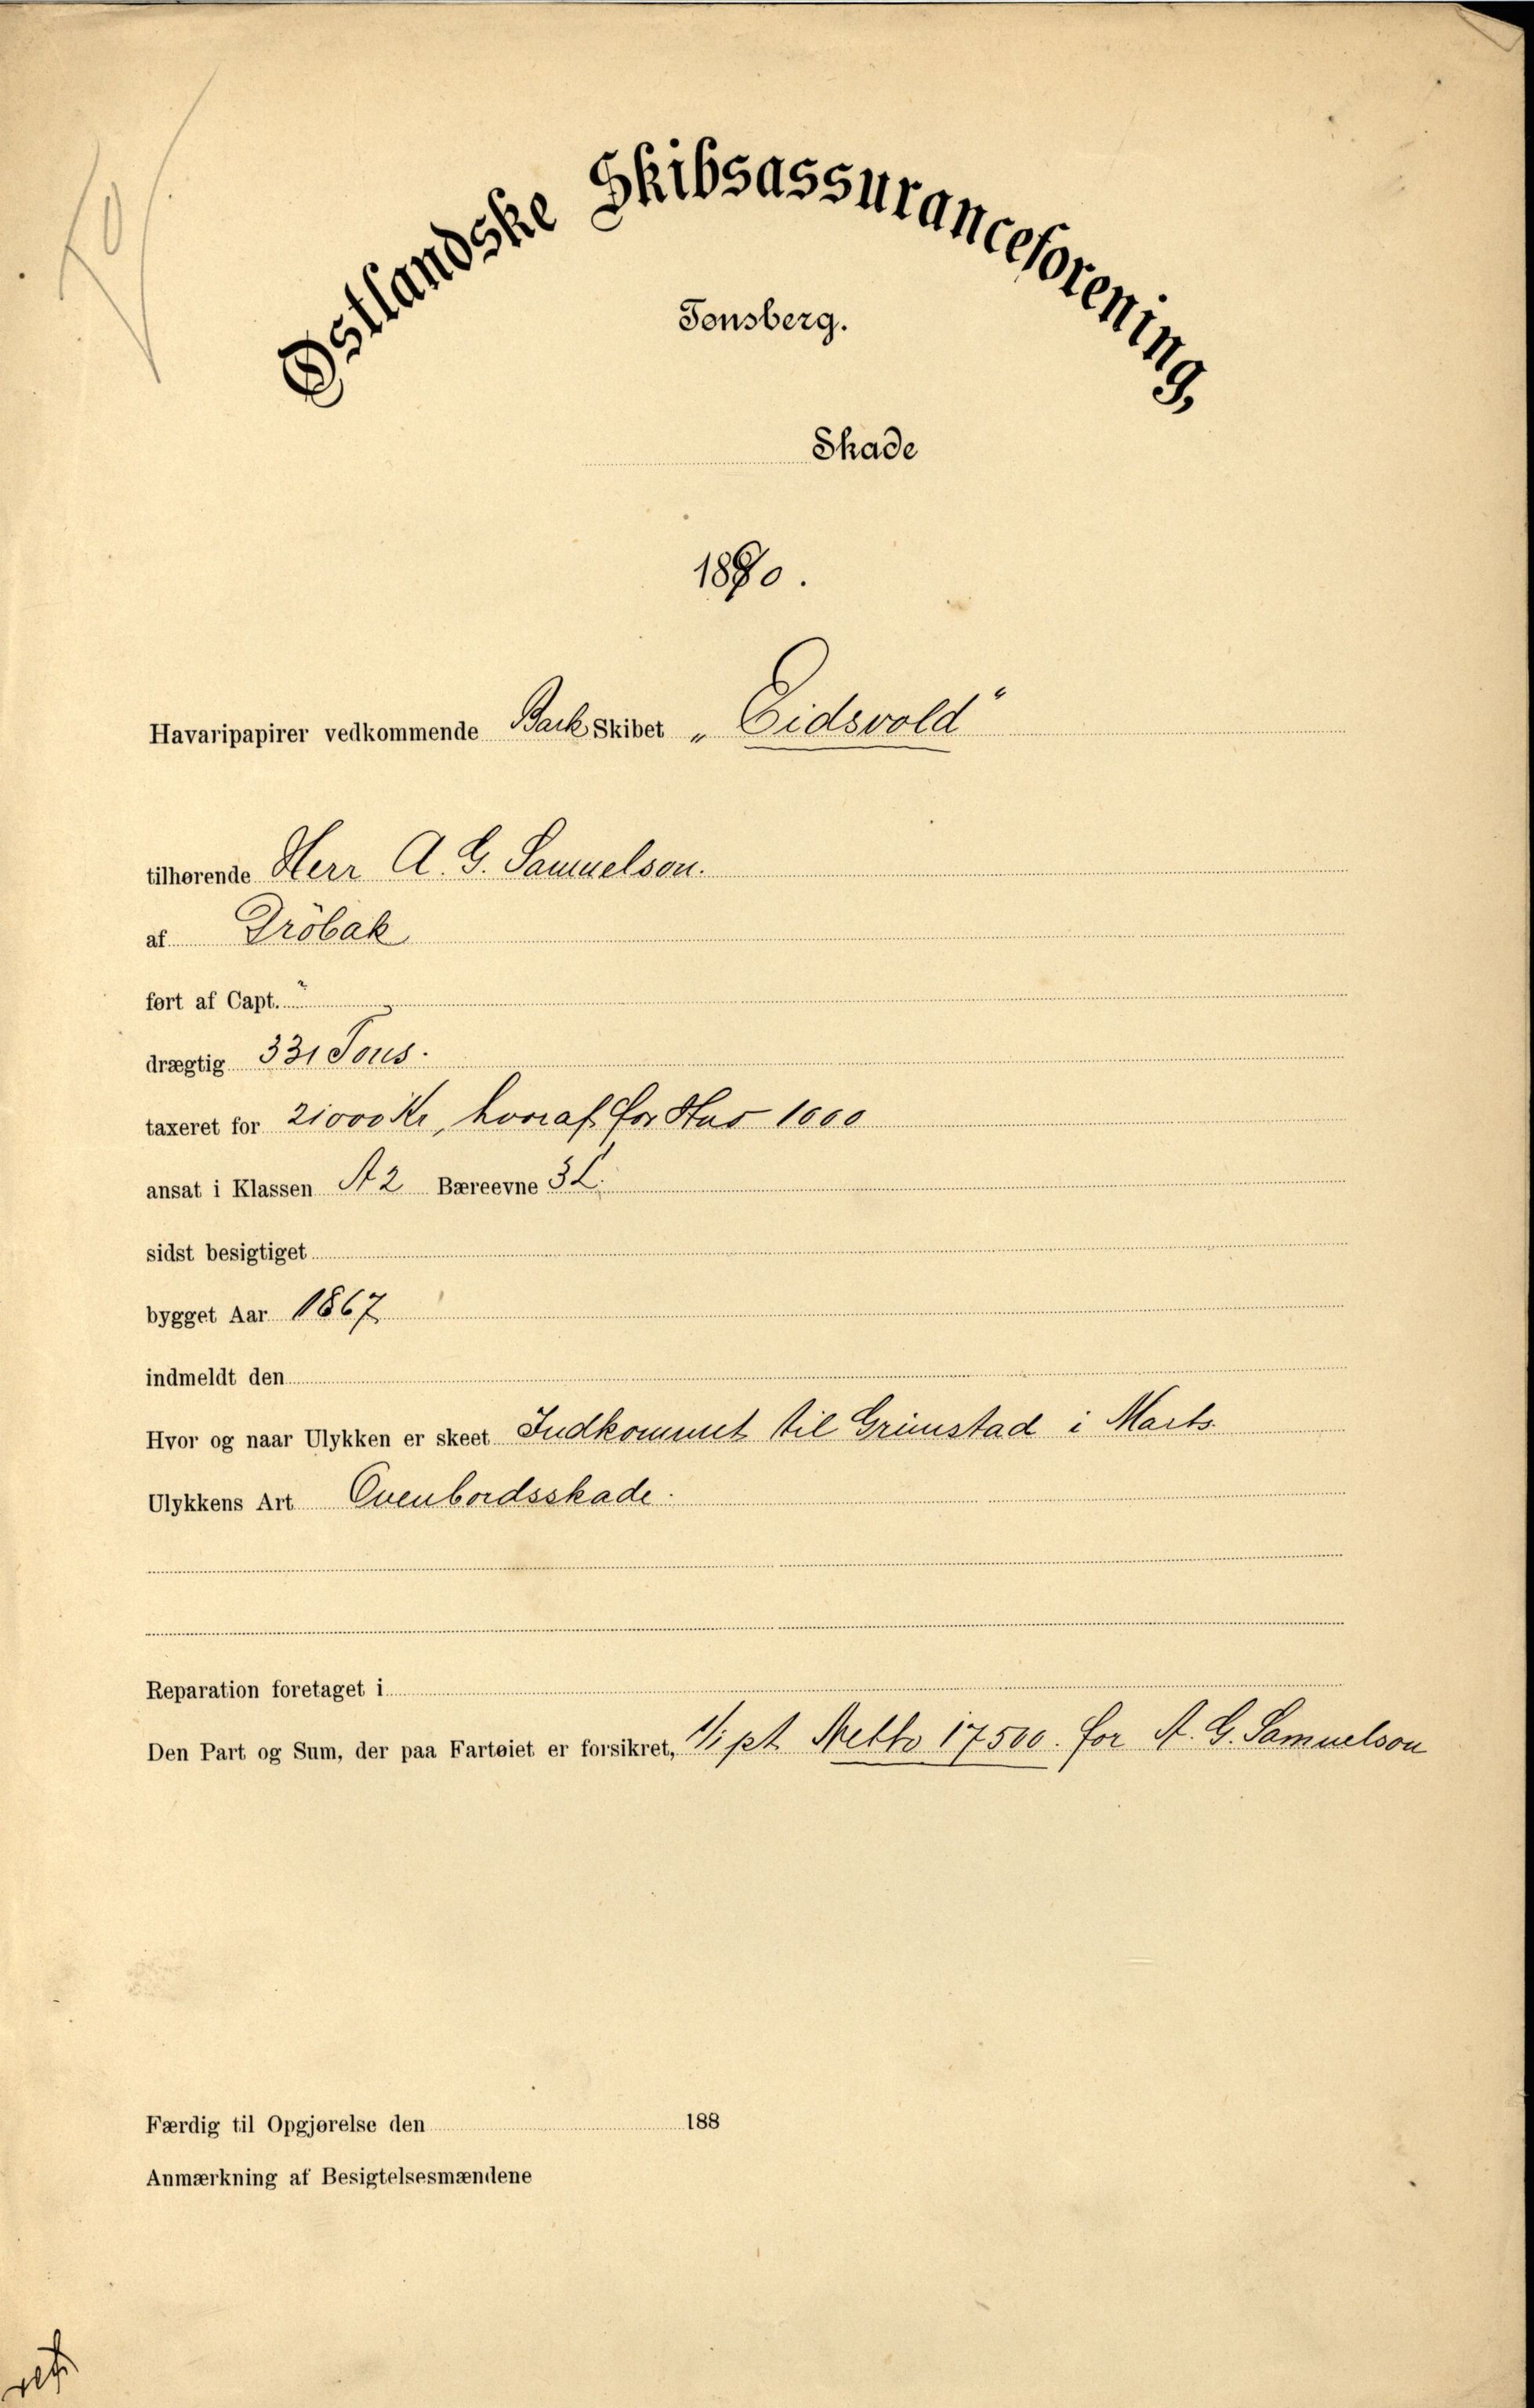 Østlandske Skibsassuranceforening,
Tønsberg.
Skade
1890.
Havaripapirer vedkommende Bark Skibet „Eidsvold“
tilhørende Herr A. G. Samuelson.
af Dröbak
ført af Capt. "
drægtig 331 Tons.
taxeret for 21000 Kr, hvoraf for Hus 1000
ansat i Klassen A 2 Bæreevne 3 L.
sidst besigtiget
bygget Aar 1867
indmeldt den
Hvor og naar Ulykken er skeet Indkommet til Grimstad i Marts.
Ulykkens Art Ovenbordsskade.
Reparation foretaget i
Den Part og Sum, der paa Fartøiet er forsikret, 1/1 pt Netto 17500. for A. G. Samuelson
Færdig til Opgjørelse den 188
Anmærkning af Besigtelsesmændene